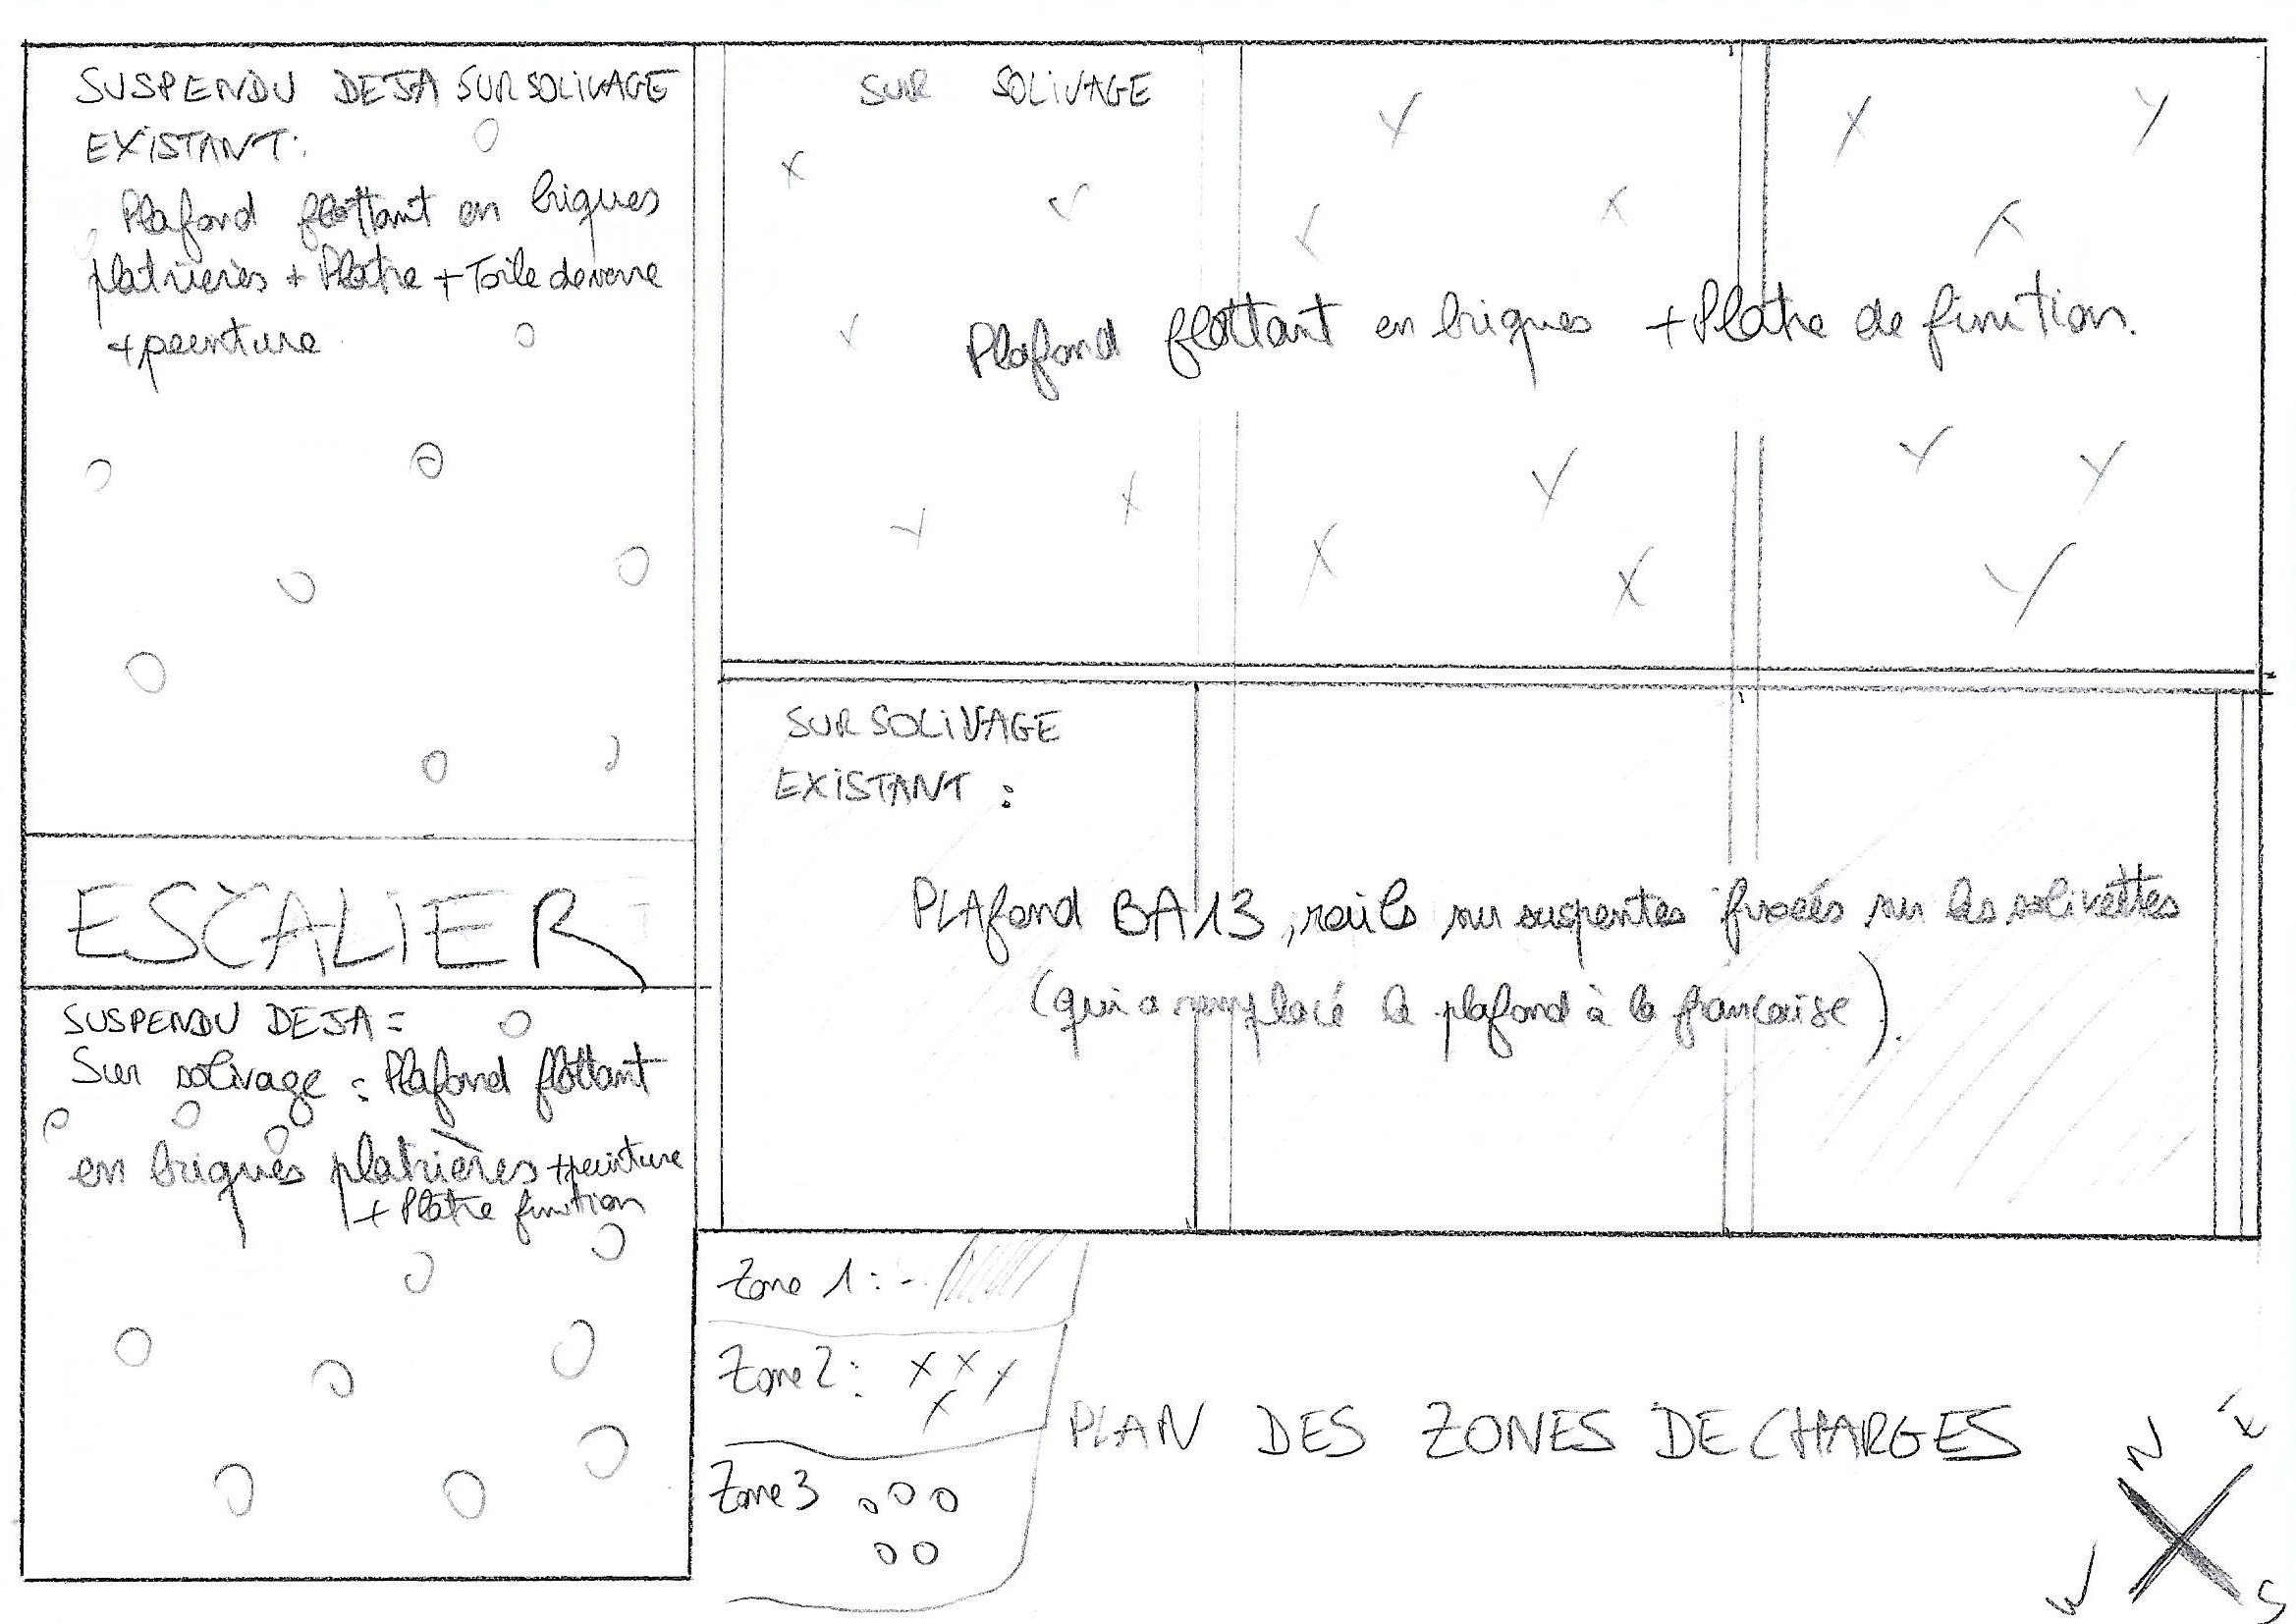 SUSPENDU DEJA SUR SOLIVAGE
EXISTANT:
Plafond flottant en briques
platrières + Platre + Toile de verre
+ peinture
SUR SOLIVAGE
Plafond flottant en briques + Platre de finition.
SUR SOLIVAGE
EXISTANT :
PLAfond BA13, rails sur suspentes fixées sur les solivettes
(qui a remplacé le plafond à la française).
ESCALIER
SUSPENDU DEJA =
Sur solivage : Plafond flottant
en briques platrières + peinture
+ Platre finition
Zone 1 :
Zone 2 :
Zone 3
PLAN DES ZONES DE CHARGES
N
W
S